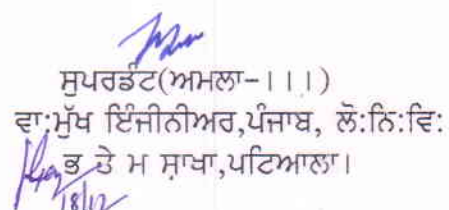 ਸੁਪਰਡੰਟ(ਅਮਲਾ-।।।)
ਵਾ:ਮੁੱਖ ਇੰਜੀਨੀਅਰ,ਪੰਜਾਬ, ਲੋ:ਨਿ:ਵਿ:
ਭ ਤੇ ਮ ਸ਼ਾਖਾ,ਪਟਿਆਲਾ।
18/12